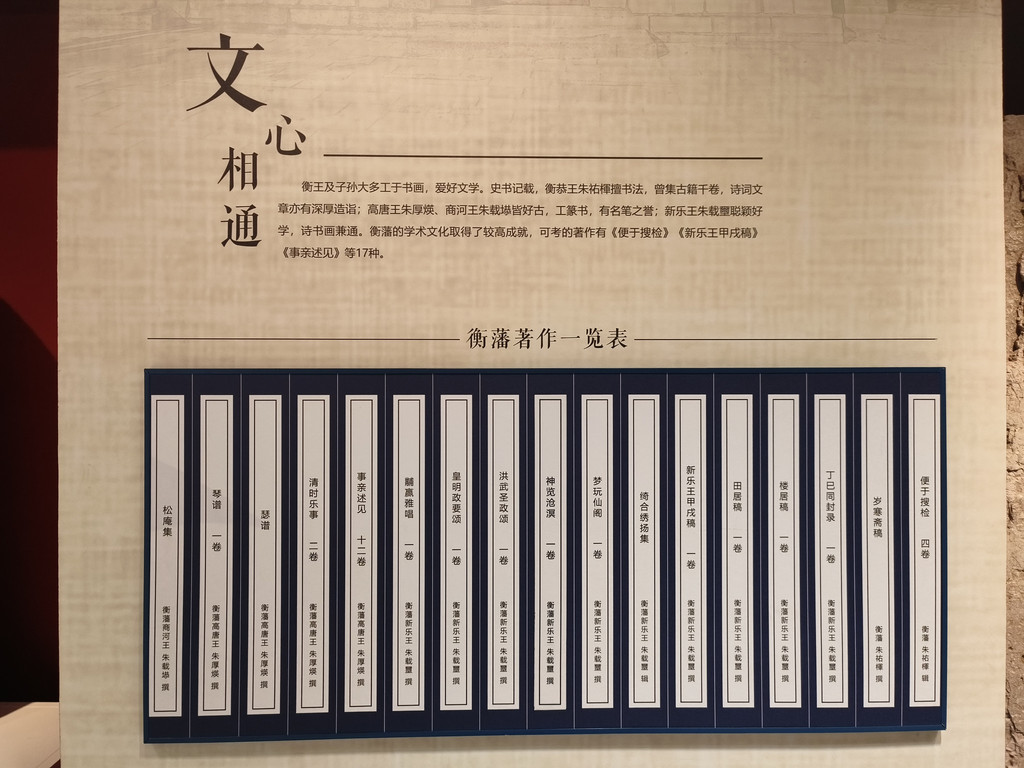 文心相通
衡王及子孙大多工于书画，爱好文学。史书记载，衡恭王朱祐楎擅书法，曾集古籍千卷，诗词文
章亦有深厚造诣；高唐王朱厚煐、商河王朱载塨皆好古，工篆书，有名笔之誉；新乐王朱载璽聪颖好
学，诗书画兼通。衡藩的学术文化取得了较高成就，可考的著作有《便于搜检》《新乐王甲戌稿》
《事亲述见》等17种。
衡藩著作一览表
便于搜检 四卷 衡藩 朱祐楎 辑
岁寒斋稿 衡藩 朱祐楎 撰
丁巳同封录 一卷 衡藩新乐王 朱载璽 撰
楼居稿 一卷 衡藩新乐王 朱载璽 撰
田居稿 一卷 衡藩新乐王 朱载璽 撰
新乐王甲戌稿 一卷 衡藩新乐王 朱载璽 撰
绮合绣扬集 衡藩新乐王 朱载璽 辑
梦玩仙阁 一卷 衡藩新乐王 朱载璽 撰
神览沧溟 一卷 衡藩新乐王 朱载璽 撰
洪武圣政颂 一卷 衡藩新乐王 朱载璽 撰
皇明政要颂 一卷 衡藩新乐王 朱载璽 撰
嬴雅唱 一卷 衡藩新乐王 朱载璽 撰
事亲述见 十二卷 衡藩高唐王 朱厚煐 撰
清时乐事 二卷 衡藩高唐王 朱厚煐 撰
瑟谱 衡藩高唐王 朱厚煐 撰
琴谱 一卷 衡藩高唐王 朱厚煐 撰
松庵集 衡藩商河王 朱载塨 撰